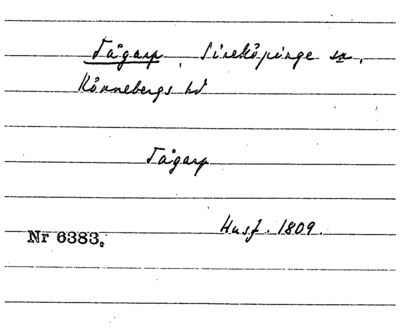 Tågarp, Sireköpinge sn,
Rönnebergs hd
Tågarp
Husf. 1809.
Nr 6383.